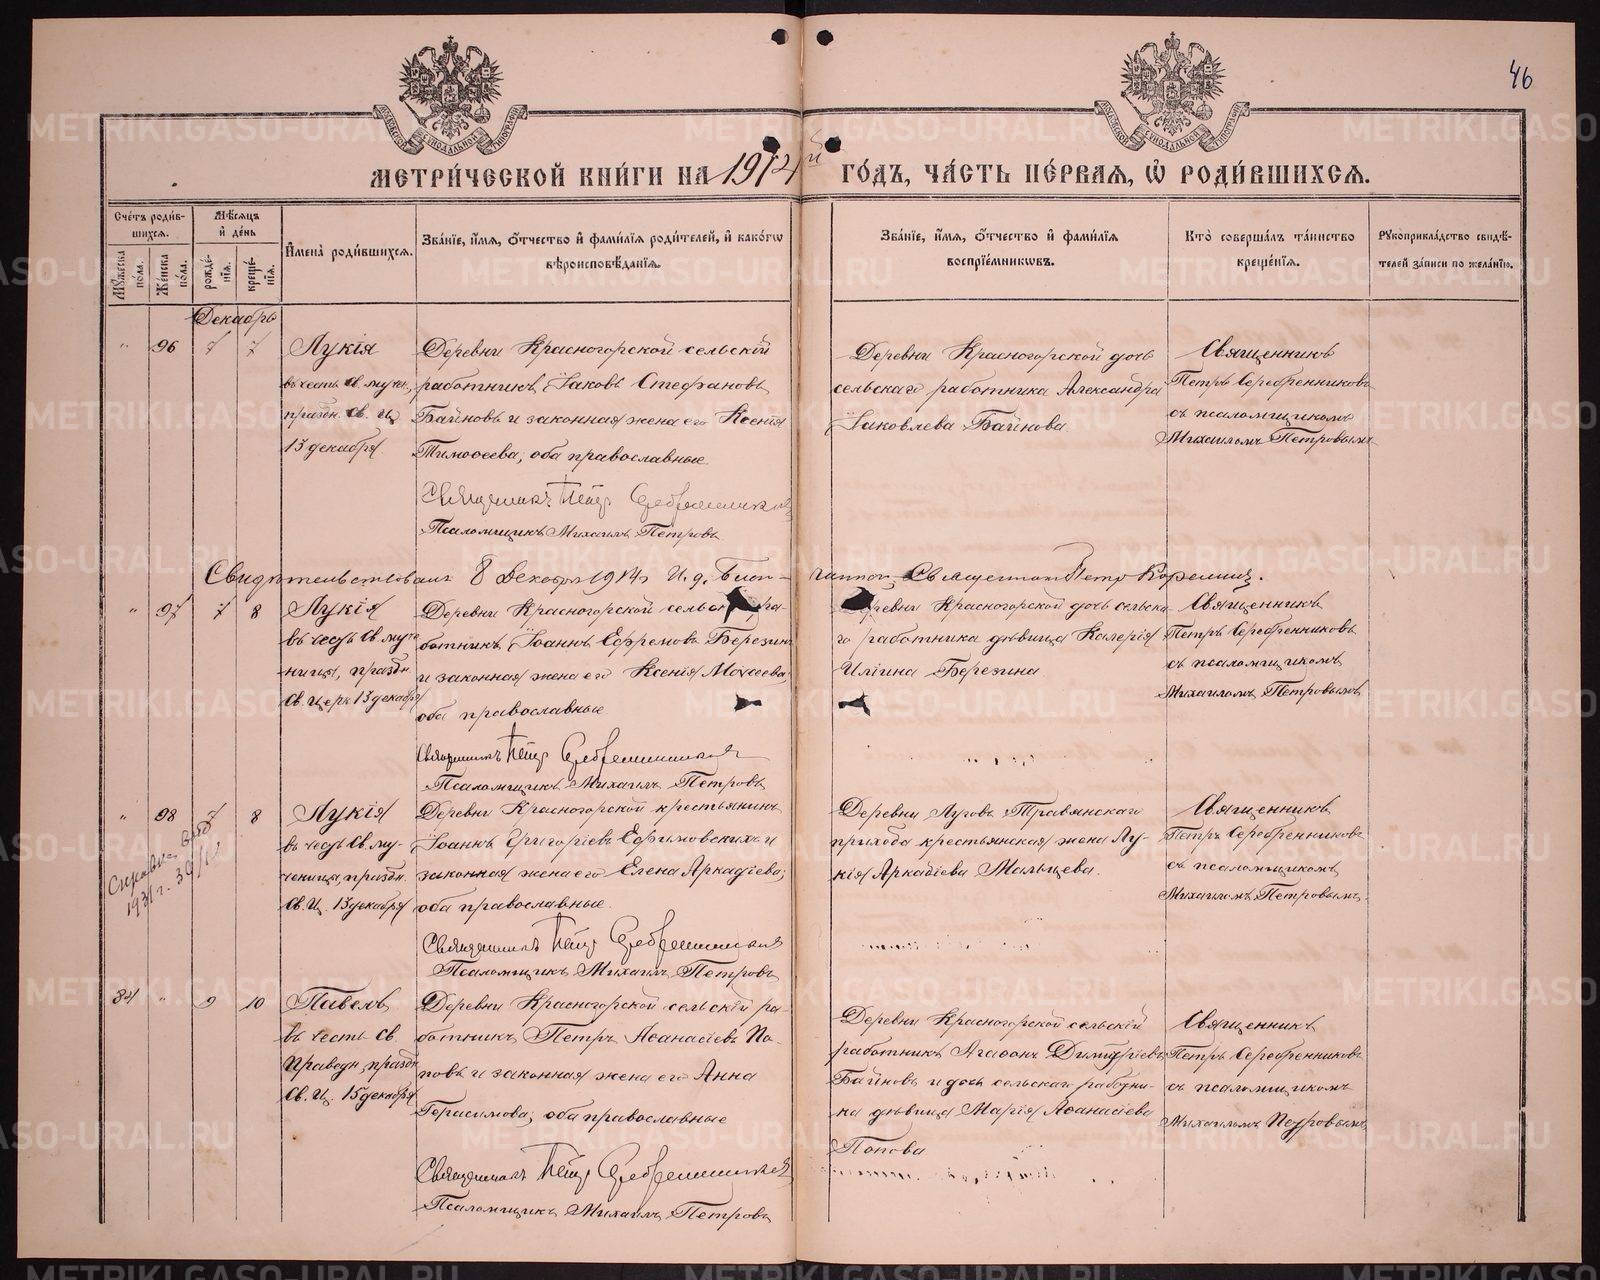 46
МЕТРИ́ЧЕСКОЙ КНИ́ГИ НА 1914й ГО́ДЪ, ЧА́СТЬ ПЕ́РВАЯ, Ѡ РОДИ́ВШИХСЯ.
Сче́тъ роди́в-
шихся.
Мꙋ́жеска по́ла.
Же́нска по́ла.
Мѣ́сяцъ
и́ де́нь
рожде́-
нїя.
креще́-
нїя.
И҆мена̀ роди́вшихся.
Зва́нїе, и҆́мя, ѻ҆́тчество и҆ фами́лїя роди́телей, и҆ како́гѡ
вѣроисповѣ́данїя.
Зва́нїе, и҆́мя, ѻ҆́тчество и҆ фами́лїя
воспрїе́мникѡвъ.
Кто̀ соверша́лъ та́инство
креще́нїя.
Рꙋкоприкла́дство свидѣ́-
телей за́писи по жела́нїю.
Декабрь
" 96 7 7
Лукія
въ честь Св. мучен.,
праздн. Св. Ц.
13 декабря
Деревни Красногорской сельскій
работникъ Іаковъ Стефановъ
Байновъ и законная жена его Ксенія
Тимоѳеева, оба православные.
Священникъ Петръ Серебренниковъ
Псаломщикъ Михаилъ Петровъ
Деревни Красногорской дочь
сельскаго работника Александра
Іаковлева Байнова
Священникъ
Петръ Серебренниковъ
съ псаломщикомъ
Михаиломъ Петровымъ
Свидѣтельствовалъ 8 Декабря 1914г И. д. Благо-
чиннаго Священникъ Петръ
" 97 7 8
Лукія
въ честь Св. муче-
ницы, праздн.
Св. Церк. 13 декабря
Деревни Красногорской сельскій ра-
ботникъ Іоаннъ Ефремовъ Березинъ
и законная жена его Ксенія Моисеева,
оба православные
Священникъ Петръ Серебренниковъ
Псаломщикъ Михаилъ Петровъ
Деревни Красногорской дочь сельска-
го работника дѣвица Калерія
Иліина Березина
Священникъ
Петръ Серебренниковъ
съ псаломщикомъ
Михаиломъ Петровымъ
" 98 7 8
1931г. 30/
Лукія
въ честь Св. му-
ченицы, праздн.
Св. Ц. 13 декабря
Деревни Красногорской крестьянинъ
Іоаннъ Григоріевъ Ефимовскихъ и
законная жена его Елена Аркадіева;
оба православные.
Священникъ Петръ Серебренниковъ
Псаломщикъ Михаилъ Петровъ
Деревни Лугова Травянскаго
прихода крестьянская жена Лу-
кія Аркадіева Мальцева.
Священникъ
Петръ Серебренниковъ
съ псаломщикомъ
Михаиломъ Петровымъ.
84 " 9 10
Павелъ
въ честь Св.
Праведн., праздн.
Св. Ц. 15 декабря
Деревни Красногорской сельскій ра-
ботникъ Петръ Аѳанасіевъ По-
повъ и законная жена его Анна
Герасимова; оба православные
Священникъ Петръ Серебренниковъ
Псаломщикъ Михаилъ Петровъ
Деревни Красногорской сельскій
работникъ Агафонъ Димитріевъ
Байновъ и дочь сельскаго работни-
ка дѣвица Марія Аѳанасіева
Попова
Священникъ
Петръ Серебренниковъ
съ псаломщикомъ
Михаиломъ Петровымъ
METRIKI.GASO-URAL.RU